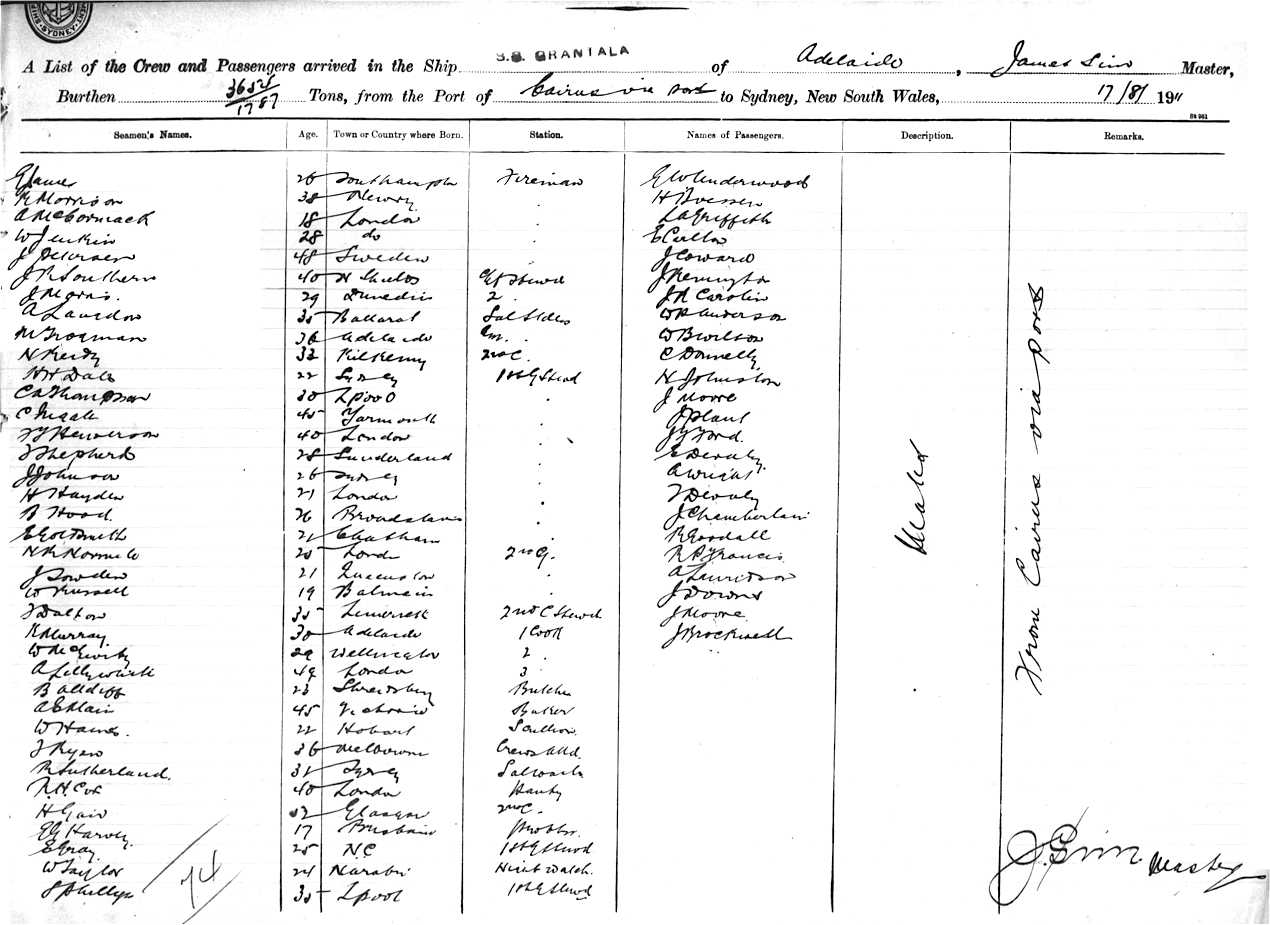 SYDNEY
S.S. GRANTALA
A List of the Crew and Passengers arrived in the Ship of Adelaide, James Sim Master,
Burthen 3655/1787 Tons, from the Port of Cairns via ports to Sydney, New South Wales, 17/8/ 1911
Seamen's Names. Age. Town or Country where Born. Station. Names of Passengers. Description. Remarks.
E James 26 Southampton Fireman E W Underwood
R Morrison 38 Newry H
A McCormack 18 London L A Griffith
W Jenkin 28 do E Carlton
J Petersen 48 Sweden J Coward
J R Southern 40 N Shields Stewd J Remington
J 29 Dunedin 2 J R Carolin
A 35 Ballarat W R Anderson
36 Adelaide W B Wilson
N Reidy 32 Kilkenny 2nd C. C Donnelly
H H Dale 22 Sydney 1st G Stewd H Johnston
C A Thompson 30 Lpool J Moore
C 45 Yarmouth J Plant
Henderson 40 London J Y Ford.
T Shepherd 28 Sunderland E
J Johnson 26 Sydney A Wright
H Hayden 21 London T
B Hood. 26 Broadstairs J Chamberlain
E Goldsmith 21 Chatham R Goodall
25 London 2nd G. R P Francis
J Sowden 21 Queenstown A
W Russell 19 Balmain J Downs
T Dalton 35 Limerick 2nd C Stewd J Moore
R Murray 30 Adelaide 1 Cook J Brockwell
W 29 Wellington 2
A Lillywhite 49 London 3
B 23 Shrewsbury Butcher
A E Main 45 Victoria Baker
W Hames. 22 Hobart Scullion
T Ryan 36 Melbourne Crews Attd.
R Sutherland. 31 Sydney
R. H. Cox 40 London Pantry
H Gair 32 Glasgow 2nd C.
E G Harvey 17 Brisbane
E Gray. 25 N.C 1st G Stewd
W Taylor 24 Narrabri Night Watch.
S Phillips 35 Lpool 1st G Stewd
74
Males
From Cairns via ports
J. Sim Master